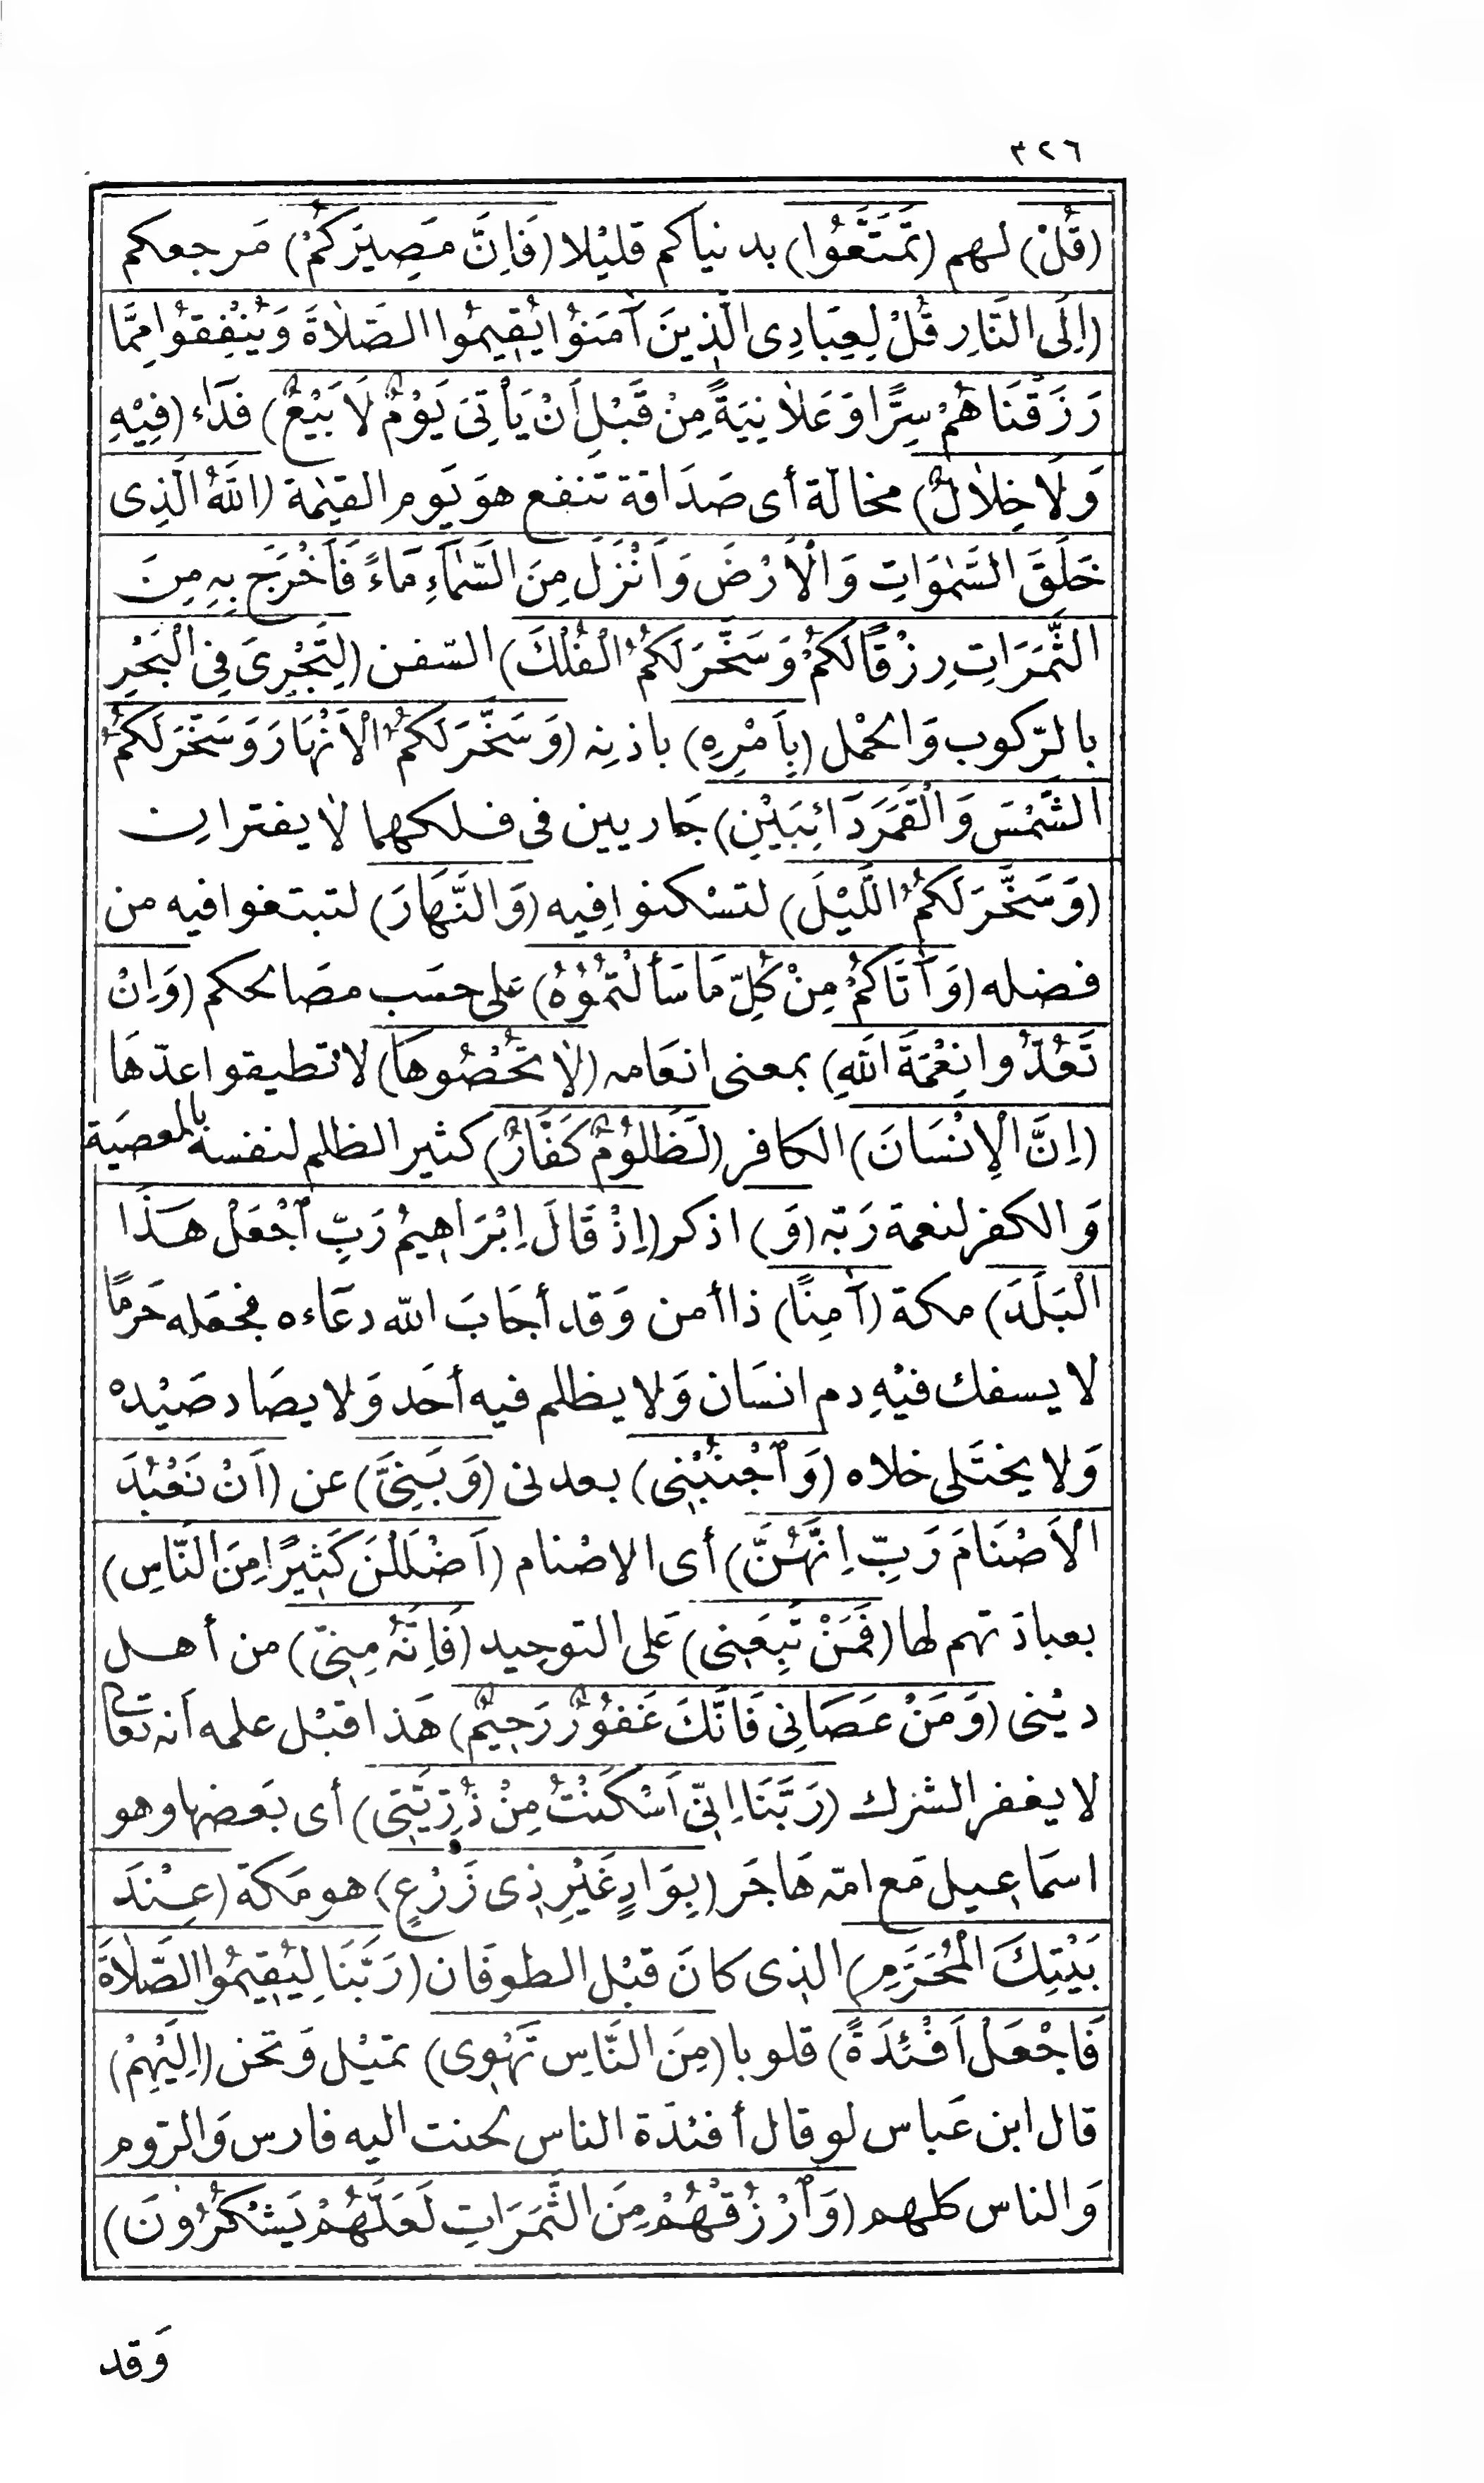 ٣٢٦
(قُلْ) لهم (تَمَتَّعُوا) بدنياكم قليْلا (فَإِنَّ مَصِيرَكُمْ) مَرجعكم
(إِلَى النَّارِ قُلْ لِعِبَادِىَ الَّذِينَ آمَنُوْا يُقِيمُوا الصَّلَاةَ وَيُنْفِقُوْا مِمَّا
رَزَقْنَاهُمْ سِرًّا وَعَلَانِيَةً مِنْ قَبْلِ أَنْ يَأْتِىَ يَوْمٌ لَا بَيْعٌ) فدَاء (فِيْهِ
وَلَا خِلَالٌ) مخالّة أى صَدَاقة تنفع هوَ يَوم القيٰمة (اللَّهُ الَّذِى
خَلَقَ السَّمٰوَاتِ وَالْأَرْضَ وَأَنْزَلَ مِنَ السَّمَآءِ مَاءً فَأَخْرَجَ بِهِ مِنَ
الثَّمَرَاتِ رِزْقًا لَكُمْ وَسَخَّرَ لَكُمُ الْفُلْكَ) السّفن (لِتَجْرِىَ فِى الْبَحْرِ
بالرّكوب وَالحْمل (بِأَمْرِهِ) باذنِه (وَسَخَّرَ لَكُمُ الْأَنْهَارَ وَسَخَّرَ لَكُمُ
الشَّمْسَ وَالْقَمَرَ دَآئِبَيْنِ) جَاريين فى فلكهما لا يفتران
(وَسَخَّرَ لَكُمُ اللَّيْلَ) لتسْكنوا فِيه (وَالنَّهَارَ) لتبتغوا فيه من
فضله (وَآتَاكُمْ مِنْ كُلِّ مَا سَأَلْتُمُوْهُ) عَلى حسَب مصَالحكم (وَإِنْ
تَعُدُّوا نِعْمَةَ اللَّهِ) بمعنى انعَامه (لَا تُحْصُوهَا) لا تطيقوا عدّهَا
(إِنَّ الْإِنْسَانَ) الكافر (لَظَلُوْمٌ كَفَّارٌ) كثير الظلم لنفسه بالمعصيَة
وَالكفر لنعمة رَبّه (وَ) اذكر (إِذْ قَالَ إِبْرَاهِيمُ رَبِّ اجْعَلْ هَذَا
الْبَلَدَ) مكة (آمِنًا) ذا أمن وَقد أجَابَ الله دعَاءه فجعَله حَرمًا
لا يسفك فيْهِ دم انسَان وَلا يظلم فيه أحَد وَلا يصَاد صَيْده
وَلا يختَلى خلاه (وَاجْنُبْنِى) بعدنى (وَبَنِىَّ) عن (أَنْ نَعْبُدَ
الْأَصْنَامَ رَبِّ إِنَّهُنَّ) أى الاصْنام (أَضْلَلْنَ كَثِيرًا مِنَ النَّاسِ)
بعبادَتهم لها (فَمَنْ تَبِعَنِى) عَلى التوحِيد (فَإِنَّهُ مِنِّى) من أهل
ديْنى (وَمَنْ عَصَانِى فَإِنَّكَ غَفُوْرٌ رَحِيمٌ) هَذا قبْل علمه أنه تعَالى
لا يغفر الشرك (رَبَّنَا إِنِّى أَسْكَنْتُ مِنْ ذُرِّيَّتِى) أى بَعضها وهو
اسمَاعِيل مَع امّه هَاجَر (بِوَادٍ غَيْرِ ذِى زَرْعٍ) هو مَكة (عِنْدَ
بَيْتِكَ الْمُحَرَّمِ) الذِى كانَ قبْل الطوفَان (رَبَّنَا لِيُقِيمُوا الصَّلَاةَ
فَاجْعَلْ أَفْئِدَةً) قلوبا (مِنَ النَّاسِ تَهْوِى) تميْل وَتحن (إِلَيْهِمْ)
قال ابن عَباس لو قال أفئدَة الناس لحنت اليه فارس وَالرّوم
وَالناس كلهم (وَارْزُقْهُمْ مِنَ الثَّمَرَاتِ لَعَلَّهُمْ يَشْكُرُوْنَ)
وَقد